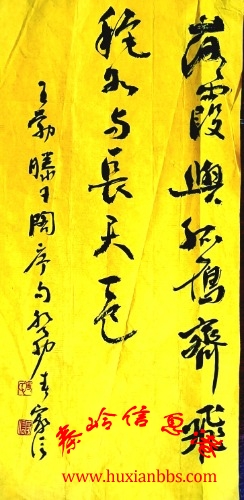 落霞與孤鶩齊飛
秋水与長天一色
王勃滕王阁序句
秦岭信息
www.huxianbbs.com